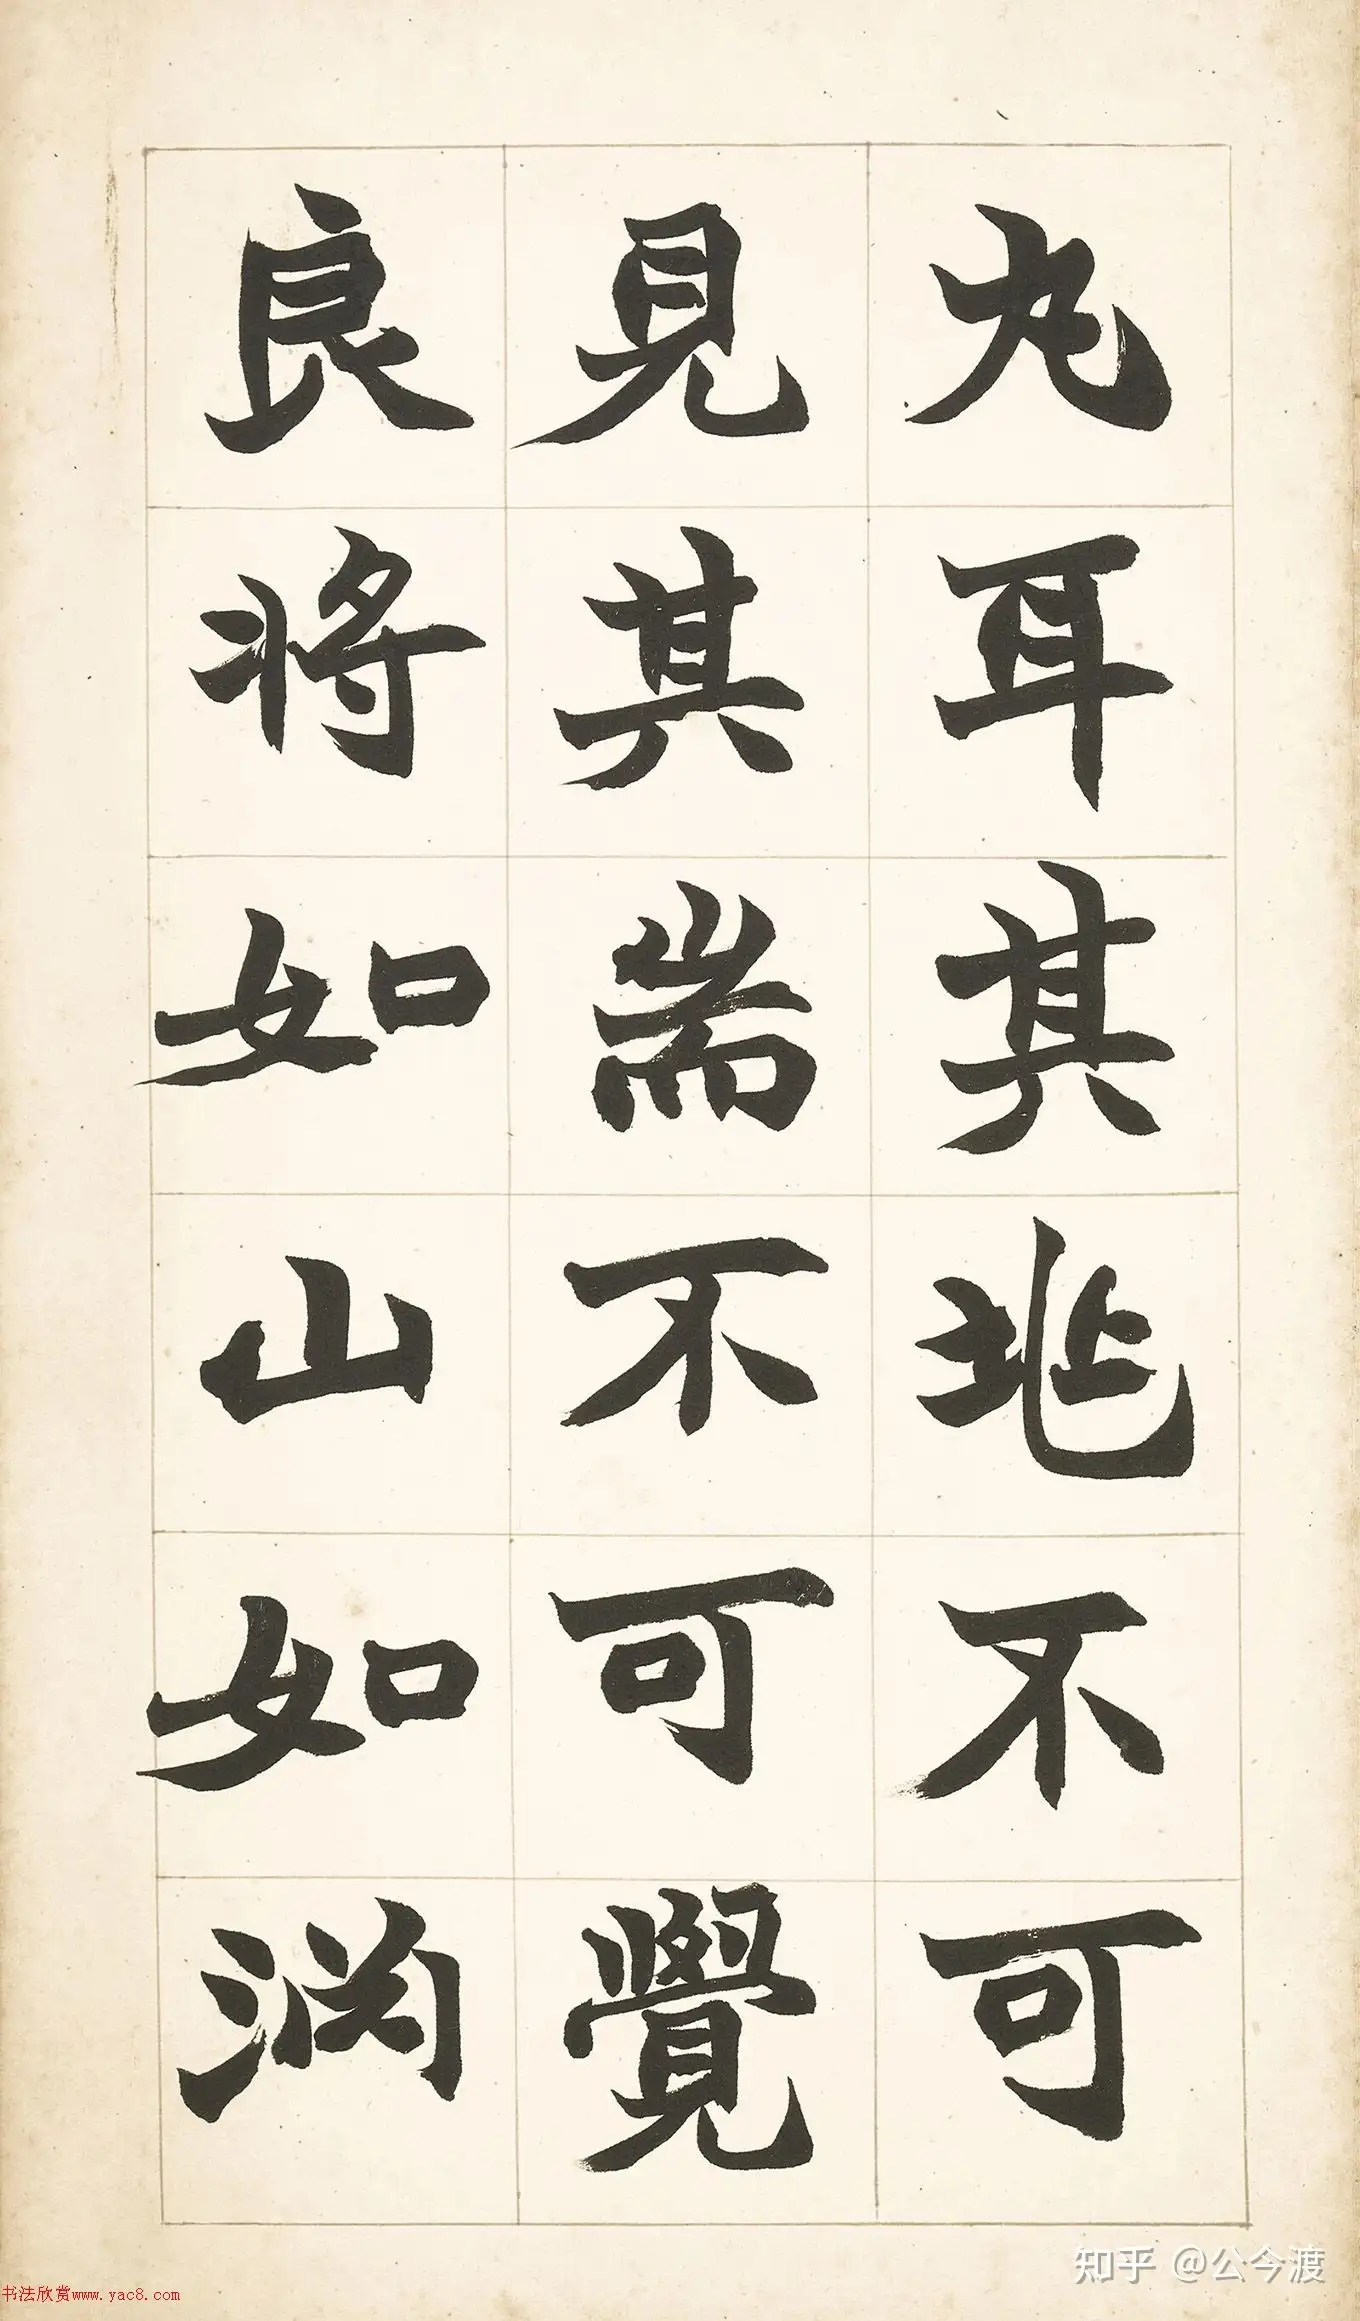 丸耳其兆不可
見其耑不可覺
良將如山如渊
知乎 @公今渡
书法欣赏www.yac8.com